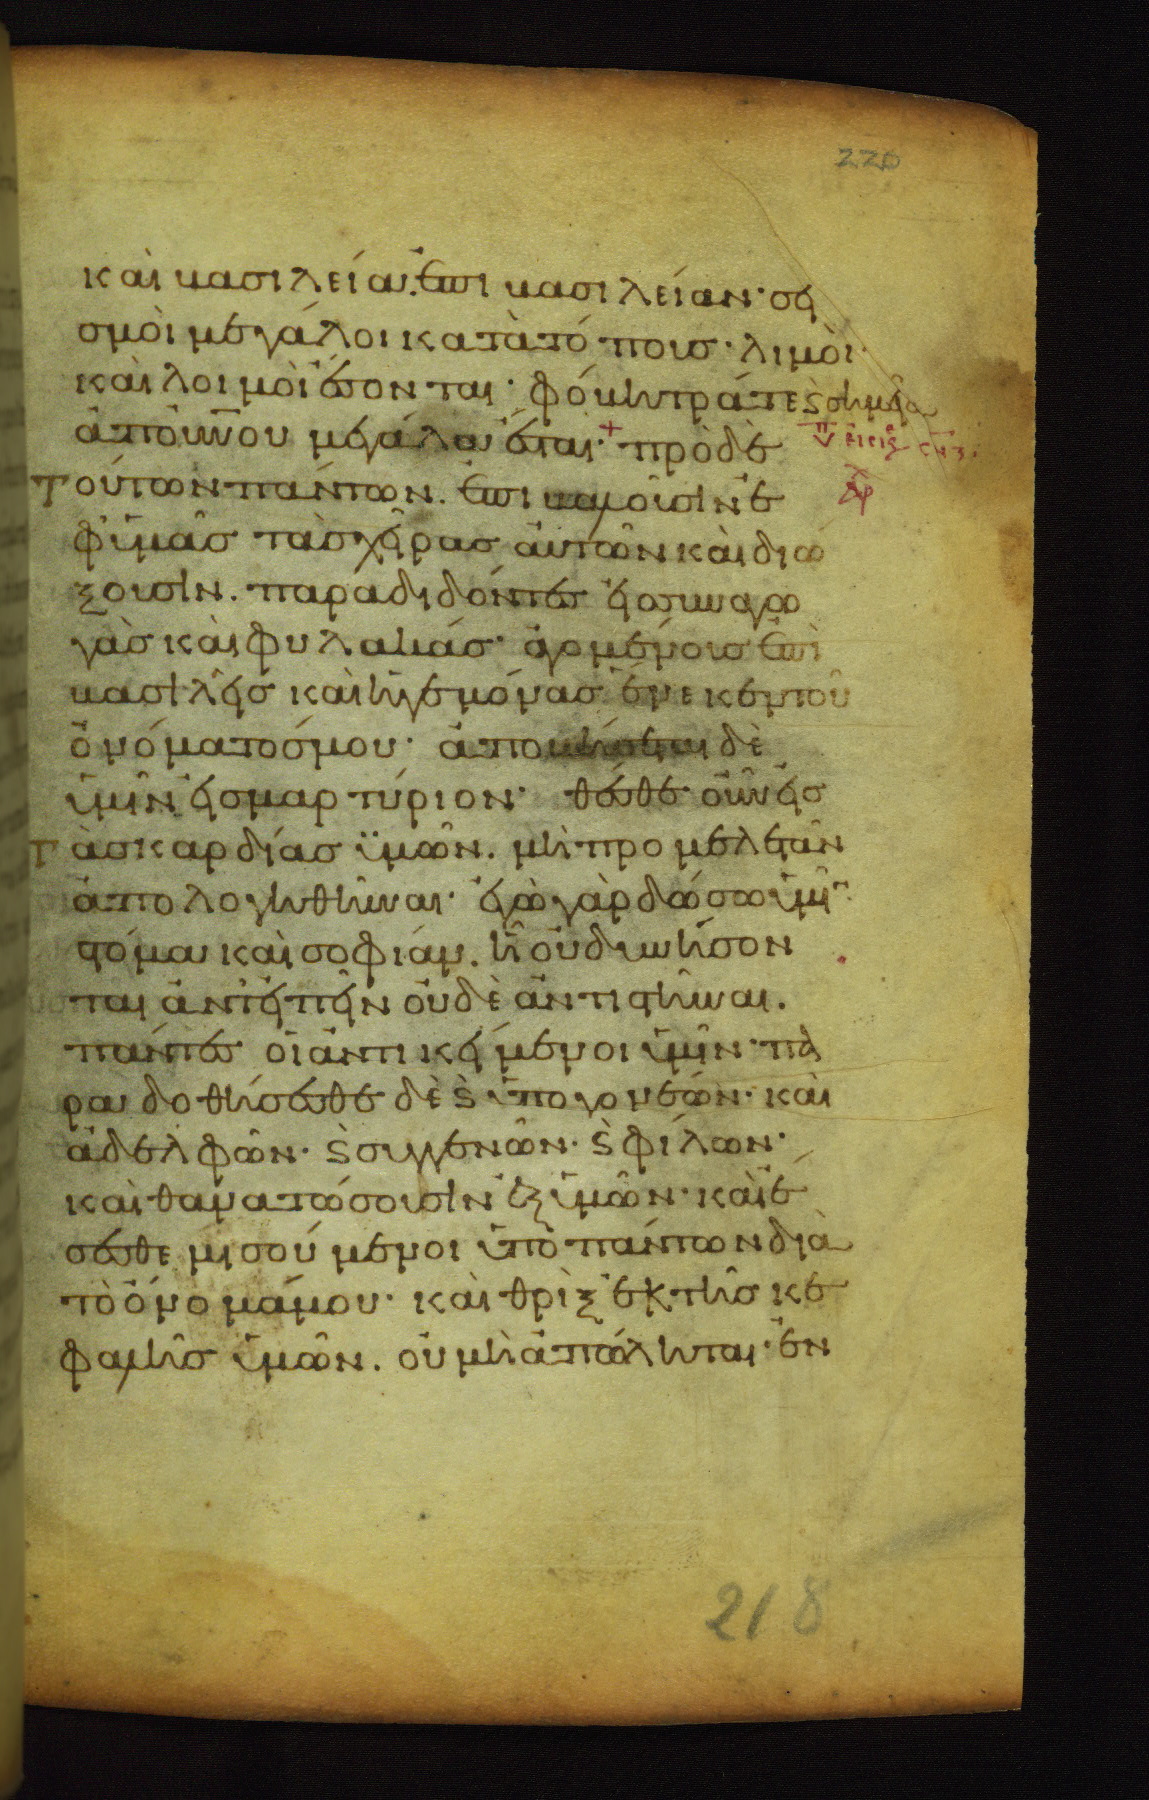 220
καὶ βασιλεία ἐπὶ βασιλείαν· σει
σμοὶ μεγάλοι κατὰ τόπους· λιμοὶ·
καὶ λοιμοὶ ἔσονται· φόβητρά τε ϛ σημεῖα
ἀπ' οὐνου μεγάλα ἔσται·+ πρὸ δὲ
τούτων πάντων. ἐπιβαλοῦσιν ἐ
φ' ὑμᾶς τὰς χεῖρας αὐτῶν καὶ διώ
ξουσιν. παραδιδόντες εἰς συναγω
γὰς καὶ φυλακάς· ἀγομένους ἐπὶ
βασιλεῖς καὶ ἡγεμόνας ἕνεκεν τοῦ
ὀνόματός μου· ἀποβήσεται δὲ
ὑμῖν εἰς μαρτύριον· θέσθε οὖν εἰς
τὰς καρδίας ὑμῶν. μὴ προμελετᾶν
ἀπολογηθῆναι· ἐγὼ γὰρ δώσω ὑμῖ
στόμα καὶ σοφίαν. ᾗ οὐ δυνήσον
ται ἀντειπεῖν οὐδὲ ἀντιστῆναι.
πάντες οἱ ἀντικείμενοι ὑμῖν· πα
ραδοθήσεσθε δὲ ϛ ὑπὸ γονέων· καὶ
ἀδελφῶν· ϛ συγγενῶν· ϛ φίλων·
καὶ θανατώσουσιν ἐξ ὑμῶν· καὶ ἔ
σεσθε μισούμενοι ὑπὸ πάντων διὰ
τὸ ὄνομά μου· καὶ θρὶξ ἐκ τῆς κε
φαλῆς ὑμῶν. οὐ μὴ ἀπόληται· ἐν
218